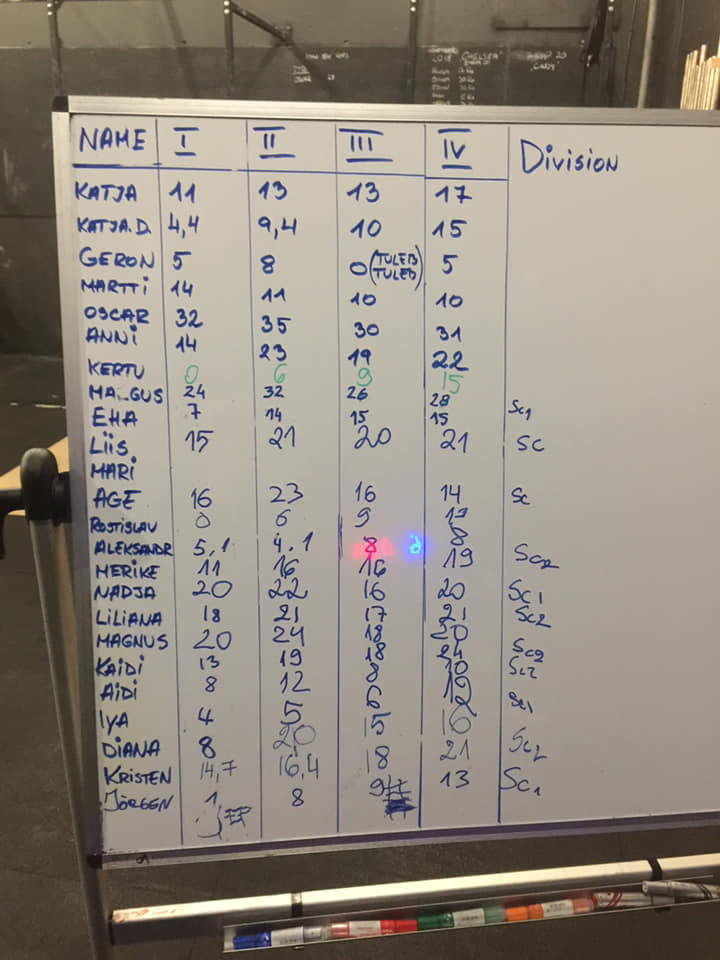 NAME I II III IV Division
KATJA 11 13 13 17
KATJA.D. 4,4 9,4 10 15
GERON 5 8 0 (TULEB TULEB) 5
MARTTI 14 11 10 10
OSCAR 32 35 30 31
ANNI 14 23 19 22
KERTU 0 6 9 15
MA_GUS 24 32 26 28
EHA 7 14 15 15 Sc1
Liis 15 21 20 21 SC
MARI
AGE 16 23 16 14 Sc
ROSTISLAV 0 6 9
ALEKSANDR 5,1 4,1 8 8
MERIKE 11 16 16 19 Sc2
NADJA 20 22 16 20 Sc1
LILIANA 18 21 17 21 Sc2
MAGNUS 20 24 18 20
KAIDI 13 19 18 24 Sc2
AIDI 8 12 8 10 Sc2
IYA 4 5 6 12 Sc1
DIANA 8 20 15 16
KRISTEN 14,7 16,4 18 21 Sc2
JÖRGEN 1 8 9 13 Sc1